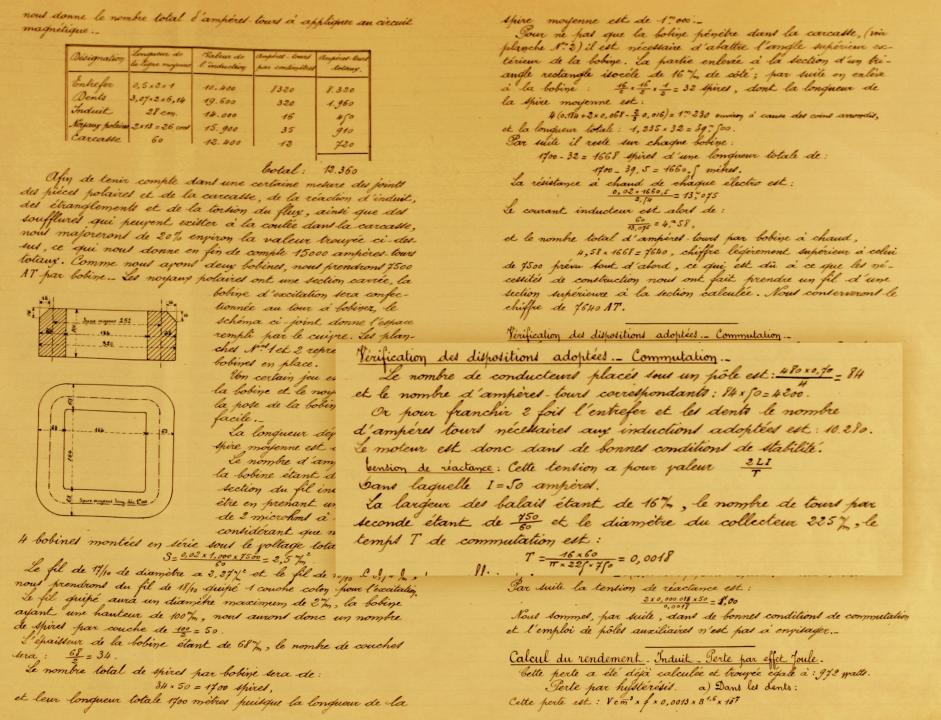 nous donne le nombre total d'ampères-tours à appliquer au circuit
magnétique._
Désignation Longueur de la ligne moyenne Valeur de l'induction Ampères-tours par centimètres Ampères-tours totaux.
Entrefer 0,5×2×1 10.400 8320 8.320
Dents 3,07×2×6,14 19.600 320 1.960
Induit 28 cm. 14.000 16 450
Noyaux polaires 2×13=26 cm 15.900 35 910
Carcasse 60 12.400 12 720
Total: 12.360
Afin de tenir compte dans une certaine mesure des joints
des pièces polaires et de la carcasse, de la réaction d'induit,
des étranglements et de la torsion du flux, ainsi que des
soufflures qui peuvent exister à la coulée dans la carcasse,
nous majorerons de 20% environ la valeur trouvée ci-des-
sus, ce qui nous donne en fin de compte 15000 ampères-tours
totaux. Comme nous avons deux bobines, nous prendrons 7500
AT par bobine._ Les noyaux polaires ont une section carrée, la
bobine d'excitation sera confec-
tionnée au tour à bobiner, le
schéma ci-joint donne l'espace
rempli par le cuivre. Les plan-
ches Nos 1 et 2 repré
bobines en place.
Un certain jeu es
la bobine et le noy
la pose de la bobin
facile._
La longueur de
spire moyenne est
Le nombre d'am
la bobine étant d
section du fil in
être en prenant un
de 2 microhms à
considérant que n
4 bobines montées en série sous le voltage tota
S = 0,02 × 1,000 × 7500 / 60 = 2,5 m/m²
Le fil de 17/10 de diamètre a 2,27 m/m² et le fil de
nous prendrons du fil de 18/10 guipé 1 couche coton pour l'excitation.
Le fil guipé aura un diamètre maximum de 2 m/m, la bobine
ayant une hauteur de 100 m/m, nous aurons donc un nombre
de spires par couche de 100/2 = 50.
L'épaisseur de la bobine étant de 68 m/m, le nombre de couches
sera: 68/2 = 34.
Le nombre total de spires par bobine sera de:
34 × 50 = 1700 spires,
et leur longueur totale 1700 mètres puisque la longueur de la
spire moyenne est de 1m000._
Pour ne pas que la bobine pénètre dans la carcasse, (voir
planche N° 2) il est nécessaire d'abattre l'angle supérieur ex-
térieur de la bobine. La partie enlevée à la section d'un tri-
angle rectangle isocèle de 16 m/m de côté; par suite on enlève
à la bobine: 16/2 × 16/2 × 1/2 = 32 spires, dont la longueur de
la spire moyenne est:
4(0,184 + 2×0,068 - 2/3 0,016) = 1m230 environ à cause des coins arrondis,
et la longueur totale: 1,235 × 32 = 39m500.
Par suite il reste sur chaque bobine:
1700 - 32 = 1668 spires d'une longueur totale de:
1700 - 39,5 = 1660,5 mètres.
La résistance à chaud de chaque électro est:
0,02 × 1660,5 / 2,54 = 13ω075
Le courant inducteur est alors de:
60 / 13,075 = 4,58,
et le nombre total d'ampères-tours par bobine à chaud,
4,58 × 1668 = 7640, chiffre légèrement supérieur à celui
de 7500 prévu tout d'abord, ce qui est dû à ce que les né-
cessités de construction nous ont fait prendre un fil d'une
section supérieure à la section calculée. Nous conserverons le
chiffre de 7640 AT.
Vérification des dispositions adoptées._ Commutation._
Vérification des dispositions adoptées._ Commutation._
Le nombre de conducteurs placés sous un pôle est: 480 × 0,70 / 4 = 84
et le nombre d'ampères-tours correspondants: 84 × 50 = 4200.
Or pour franchir 2 fois l'entrefer et les dents le nombre
d'ampères tours nécessaires aux inductions adoptées est: 10.280.
Le moteur est donc dans de bonnes conditions de stabilité.
Tension de réactance: Cette tension a pour valeur 2LI/T
Dans laquelle I = 50 ampères.
La largeur des balais étant de 16 m/m, le nombre de tours par
seconde étant de 750/60 et le diamètre du collecteur 225 m/m, le
temps T de commutation est:
T = 16 × 60 / π × 225 × 750 = 0,0018
Par suite la tension de réactance est:
2 × 0,000 018 × 50 / 0,0018 = 8,00
Nous sommes, par suite, dans de bonnes conditions de commutation
et l'emploi de pôles auxiliaires n'est pas à envisager._
Calcul du rendement._ Induit._ Perte par effet Joule.
Cette perte a été déjà calculée et trouvée égale à: 972 watts.
Perte par hystérésis. a) Dans les dents:
Cette perte est: V cm³ × f × 0,0013 × B^1,6 × 10^-7